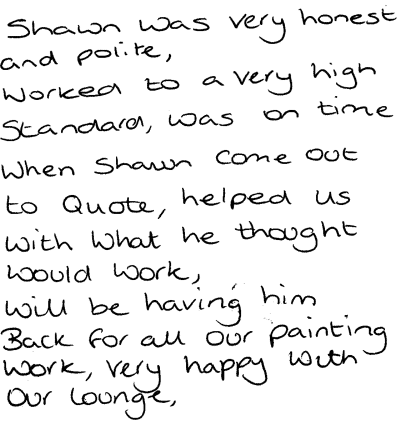 Shawn was very honest
and polite,
Worked to a very high
Standard, was on time
When Shawn come out
to Quote, helped us
with what he thought
would work,
will be having him
Back for all our painting
work, very happy with
our lounge,